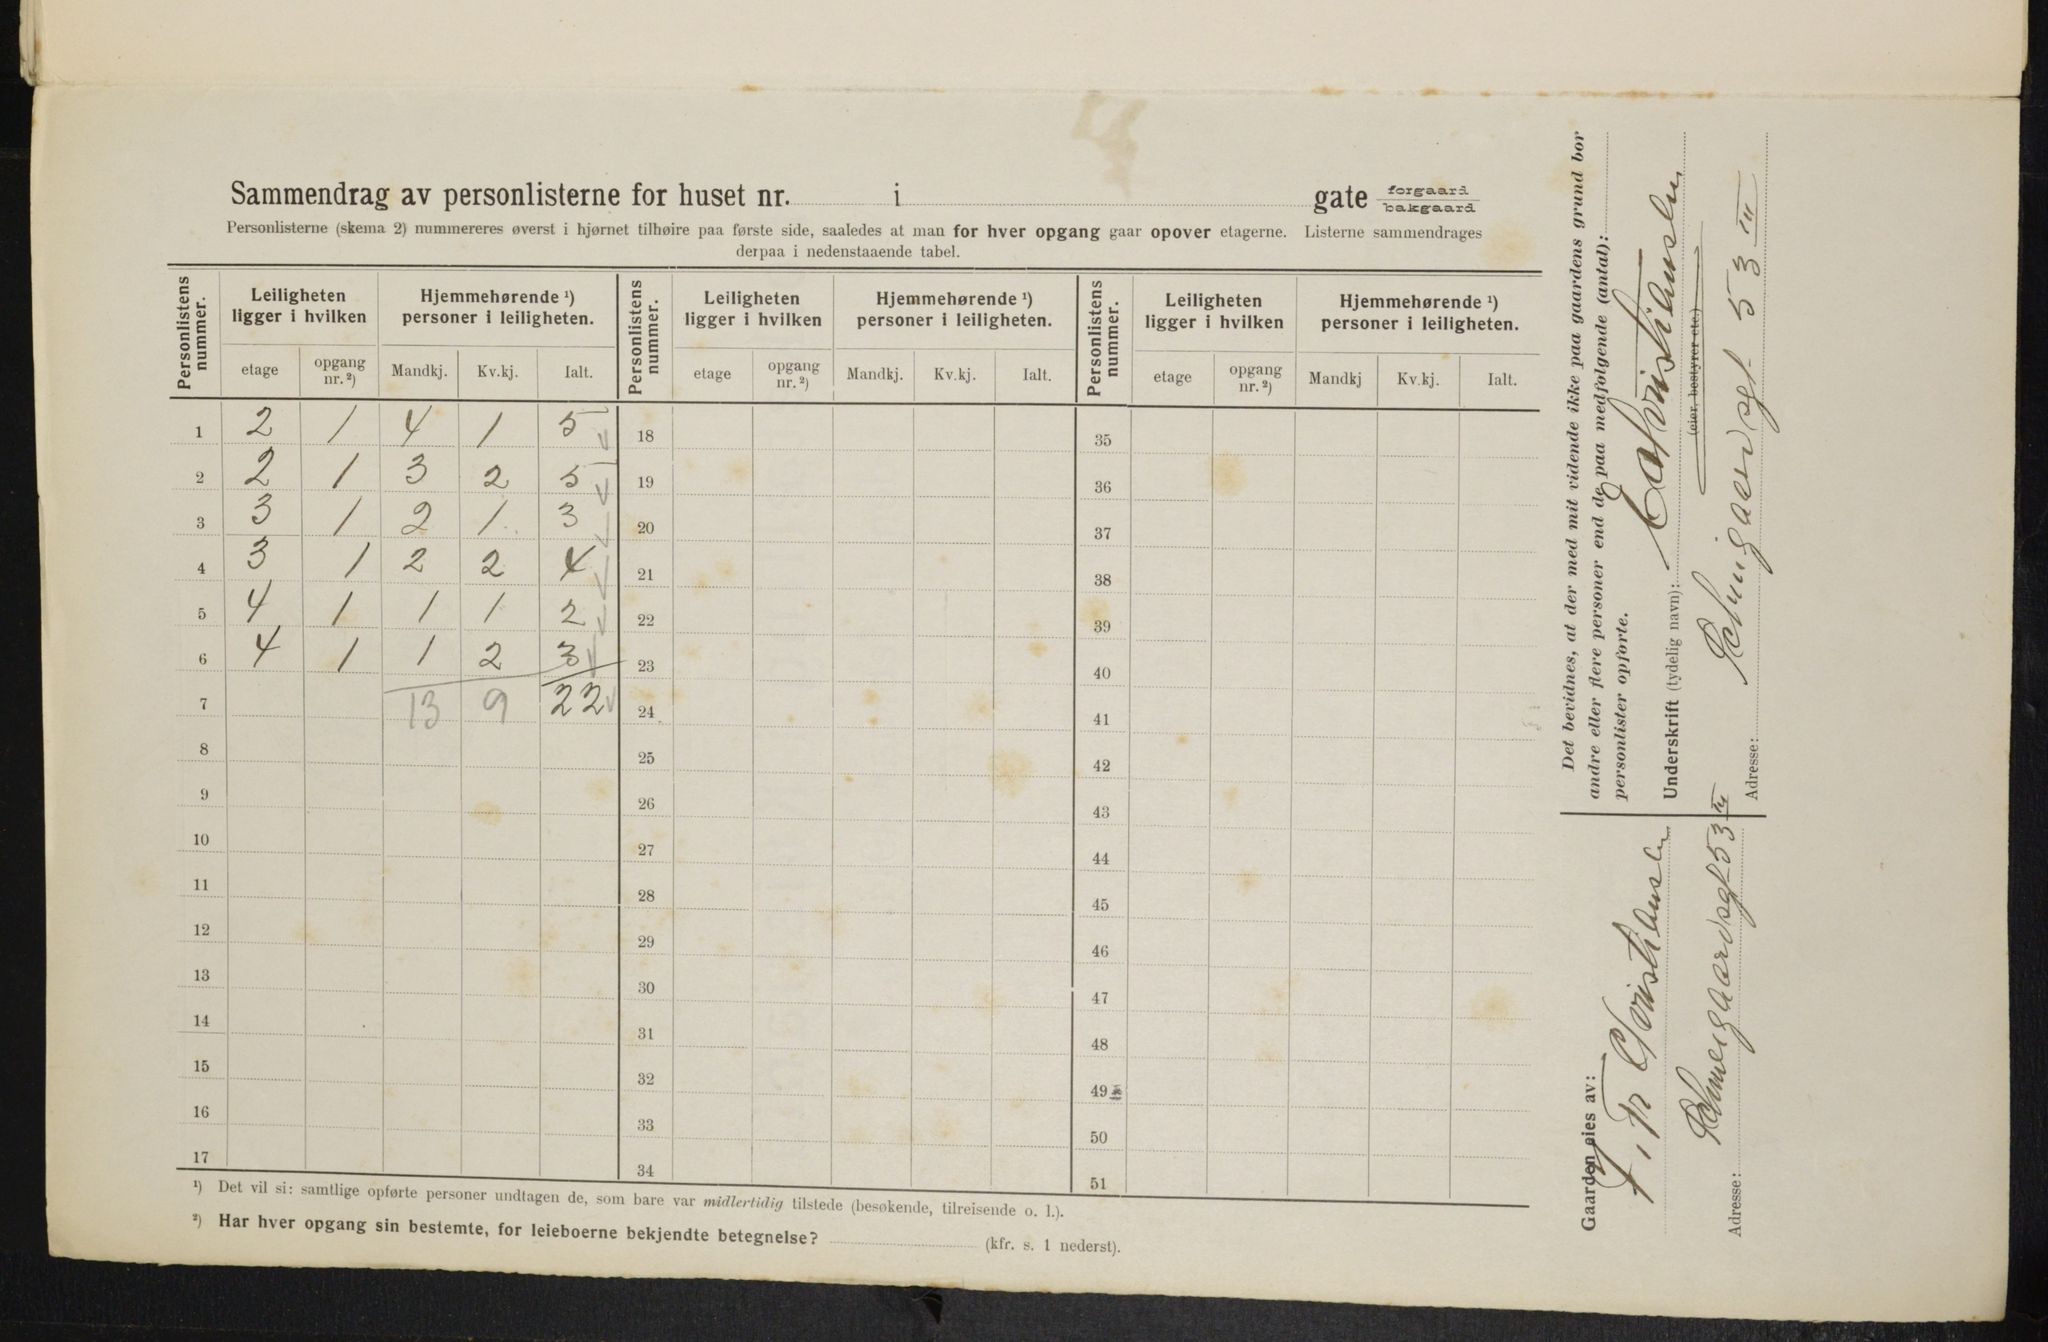 Sammendrag av personlisterne for huset nr. i gate forgaard bakgaard
Personlisterne (skema 2) nummereres øverst i hjørnet tilhøire paa første side, saaledes at man for hver opgang gaar opover etagerne. Listerne sammendrages
derpaa i nedenstaaende tabel.
Personlistens nummer. Leiligheten ligger i hvilken Hjemmehørende ¹) personer i leiligheten. Personlistens nummer. Leiligheten ligger i hvilken Hjemmehørende ¹) personer i leiligheten. Personlistens nummer. Leiligheten ligger i hvilken Hjemmehørende ¹) personer i leiligheten.
etage opgang nr. ²) Mandkj. Kv.kj. Ialt. etage opgang nr. ²) Mandkj. Kv.kj. Ialt. etage opgang nr. ²) Mandkj Kv.kj. Ialt.
1 2 1 4 1 5 18 35
2 2 1 3 2 5 19 36
3 3 1 2 1 3 20 37
4 3 1 2 2 4 21 38
5 4 1 1 1 2 22 39
6 4 1 1 2 3 23 40
7 13 9 22 24 41
8 25 42
9 26 43
10 27 44
11 28 45
12 29 46
13 30 47
14 31 48
15 32 49
16 33 50
17 34 51
¹) Det vil si: samtlige opførte personer undtagen de, som bare var midlertidig tilstede (besøkende, tilreisende o. l.).
²) Har hver opgang sin bestemte, for leieboerne bekjendte betegnelse? (kfr. s. 1 nederst).
Det bevidnes, at der med mit vidende ikke paa gaardens grund bor
andre eller flere personer end de paa medfølgende (antal):
personlister opførte.
Underskrift (tydelig navn): Christiansen
(eier, bestyrer etc.)
Adresse: Schweigaardsgt 53 III
Gaarden eies av:
Christiansen
Adresse: Schweigaardsgt 53 IV